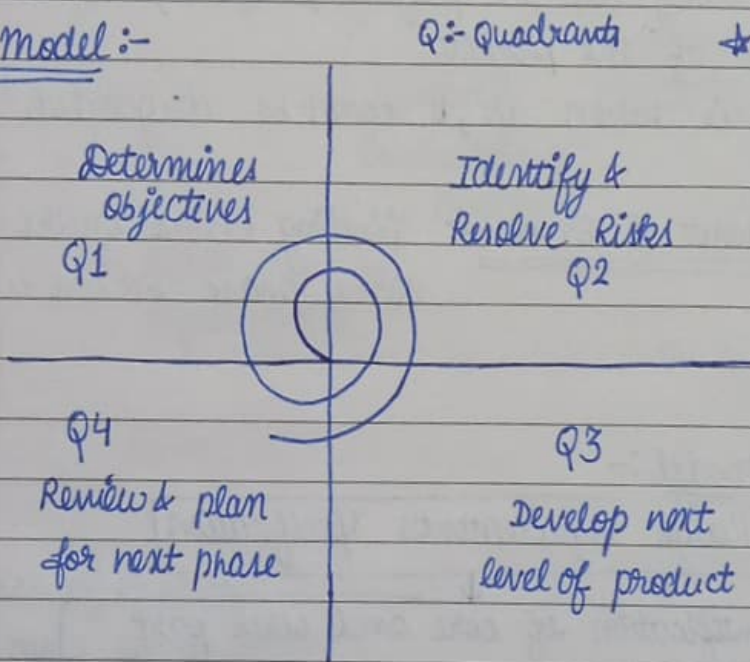 Model :-
Q:- Quadrants
Determines
objectives
Q1
Identify &
Resolve Risks
Q2
Q4
Review & plan
for next phase
Q3
Develop next
level of product